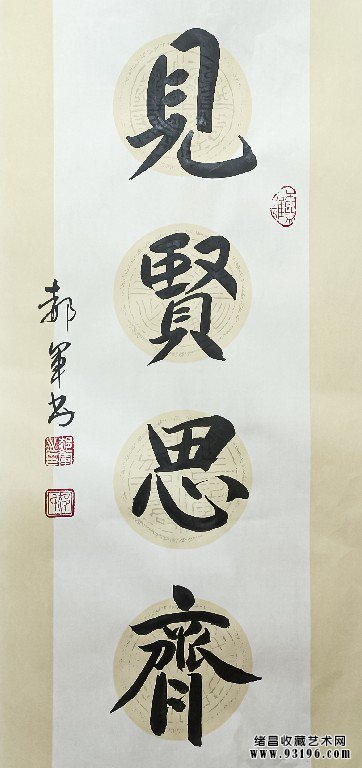 見賢思齊
郝軍书
绪昌收藏艺术网
www.93196.com